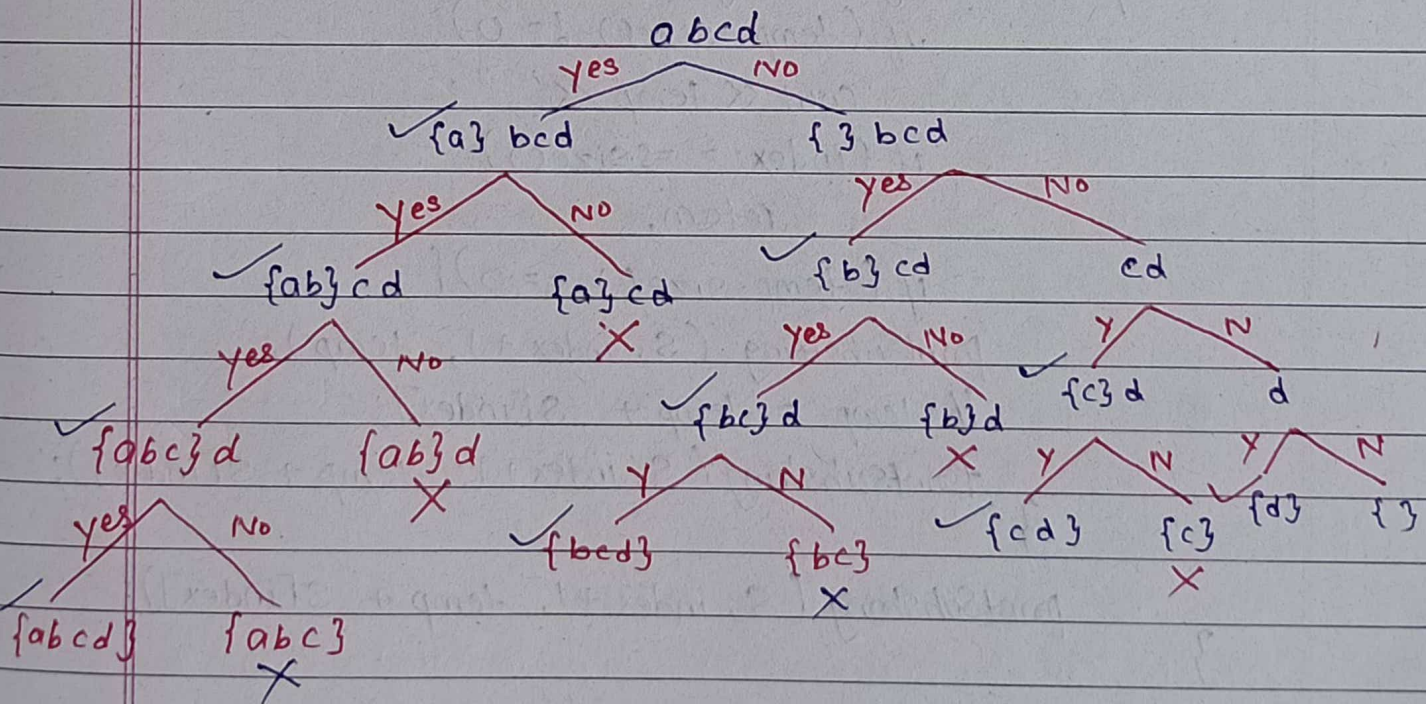 abcd
yes NO
✓ {a} bcd { } bcd
yes NO yes NO
✓ {ab} cd {a} cd ✓ {b} cd cd
X
yes NO yes No Y N
✓ {abc} d {ab} d ✓ {bc} d {b} d ✓ {c} d d
X X
yes No Y N Y N Y N
✓ {abcd} {abc} ✓ {bcd} {bc} ✓ {cd} {c} ✓ {d} { }
X X X